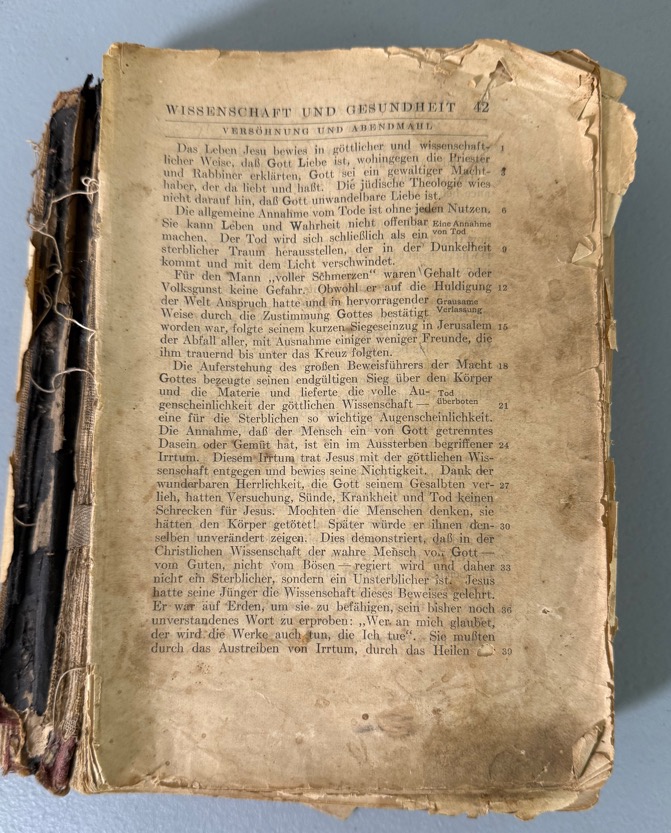 WISSENSCHAFT UND GESUNDHEIT 42
VERSÖHNUNG UND ABENDMAHL
Das Leben Jesu bewies in göttlicher und wissenschaft- 1
licher Weise, daß Gott Liebe ist, wohingegen die Priester
und Rabbiner erklärten, Gott sei ein gewaltiger Macht- 3
haber, der da liebt und haßt. Die jüdische Theologie wies
nicht darauf hin, daß Gott unwandelbare Liebe ist.
Die allgemeine Annahme vom Tode ist ohne jeden Nutzen. 6
Sie kann Leben und Wahrheit nicht offenbar Eine Annahme
machen. Der Tod wird sich schließlich als ein von Tod
sterblicher Traum herausstellen, der in der Dunkelheit 9
kommt und mit dem Licht verschwindet.
Für den Mann „voller Schmerzen“ waren Gehalt oder
Volksgunst keine Gefahr. Obwohl er auf die Huldigung 12
der Welt Anspruch hatte und in hervorragender Grausame
Weise durch die Zustimmung Gottes bestätigt Verlassung
worden war, folgte seinem kurzen Siegeseinzug in Jerusalem 15
der Abfall aller, mit Ausnahme einiger weniger Freunde, die
ihm trauernd bis unter das Kreuz folgten.
Die Auferstehung des großen Beweisführers der Macht 18
Gottes bezeugte seinen endgültigen Sieg über den Körper
und die Materie und lieferte die volle Au- Tod
genscheinlichkeit der göttlichen Wissenschaft — überboten 21
eine für die Sterblichen so wichtige Augenscheinlichkeit.
Die Annahme, daß der Mensch ein von Gott getrenntes
Dasein oder Gemüt hat, ist ein im Aussterben begriffener 24
Irrtum. Diesem Irrtum trat Jesus mit der göttlichen Wis-
senschaft entgegen und bewies seine Nichtigkeit. Dank der
wunderbaren Herrlichkeit, die Gott seinem Gesalbten ver- 27
lieh, hatten Versuchung, Sünde, Krankheit und Tod keinen
Schrecken für Jesus. Mochten die Menschen denken, sie
hätten den Körper getötet! Später würde er ihnen den- 30
selben unverändert zeigen. Dies demonstriert, daß in der
Christlichen Wissenschaft der wahre Mensch von Gott —
vom Guten, nicht vom Bösen — regiert wird und daher 33
nicht ein Sterblicher, sondern ein Unsterblicher ist. Jesus
hatte seine Jünger die Wissenschaft dieses Beweises gelehrt.
Er war auf Erden, um sie zu befähigen, sein bisher noch 36
unverstandenes Wort zu erproben: „Wer an mich glaubet,
der wird die Werke auch tun, die Ich tue“. Sie mußten
durch das Austreiben von Irrtum, durch das Heilen 39